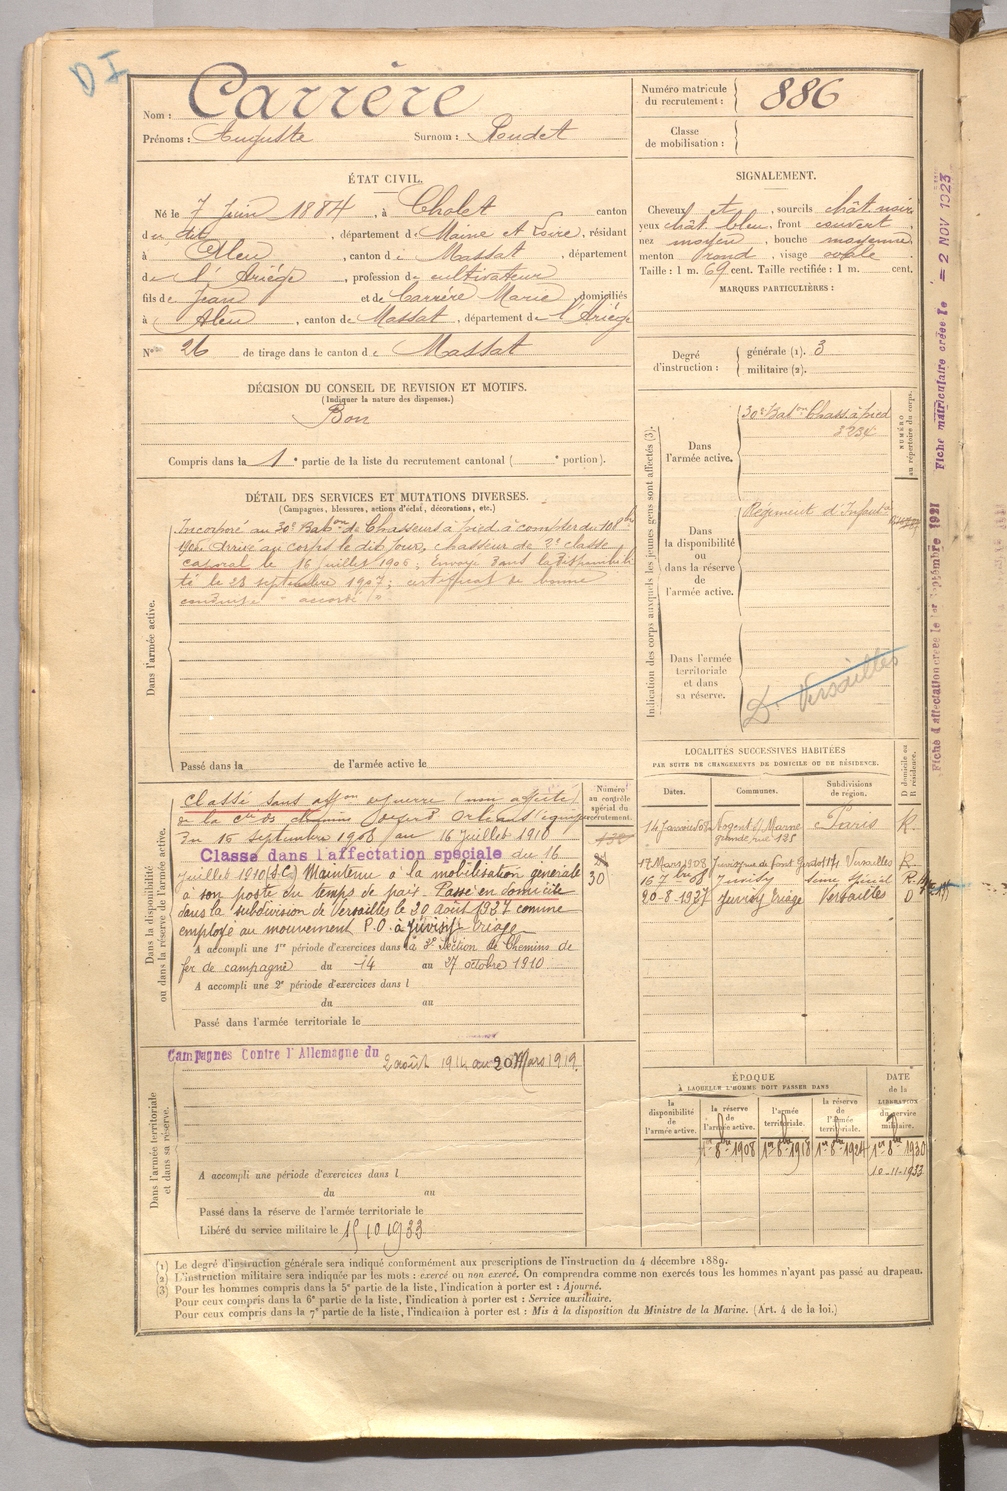 D I
Nom : Carrère
Prénoms : Auguste Surnom : Roudet
Numéro matricule du recrutement : 886
Classe de mobilisation :
ÉTAT CIVIL.
Né le 7 Juin 1884, à Cholet canton
du dit, département de Maine et Loire, résidant
à Aleu, canton de Massat, département
de l'Ariège, profession de cultivateur
fils de Jean et de Carrère Marie, domiciliés
à Aleu, canton de Massat, département de l'Ariège
N° 26 de tirage dans le canton de Massat
SIGNALEMENT.
Cheveux et, sourcils chât. noir
yeux chât. bleu, front couvert
nez moyen, bouche moyenne
menton rond, visage ovale
Taille : 1 m. 69 cent. Taille rectifiée : 1 m. cent.
MARQUES PARTICULIÈRES :
Degré d'instruction : générale (1). 3
militaire (2).
DÉCISION DU CONSEIL DE REVISION ET MOTIFS.
(Indiquer la nature des dispenses.)
Bon
Compris dans la 1e partie de la liste du recrutement cantonal ( e portion).
DÉTAIL DES SERVICES ET MUTATIONS DIVERSES.
(Campagnes, blessures, actions d'éclat, décorations, etc.)
Dans l'armée active.
Incorporé au 30e Baton de Chasseurs à pied à compter du 10 8bre
1905. Arrivé au corps le dit jour, chasseur de 2e classe
caporal le 16 juillet 1906; Envoyé dans la disponibili
té le 28 septembre 1907; certificat de bonne
conduite "accordé".
Passé dans la de l'armée active le
Indication des corps auxquels les jeunes gens sont affectés (3).
NUMÉRO au répertoire du corps.
Dans l'armée active.
30e Baton Chass. à pied
3234
Dans la disponibilité ou dans la réserve de l'armée active.
Régiment d'Infanterie
Dans l'armée territoriale et dans sa réserve.
D. Versailles
Dans la disponibilité ou dans la réserve de l'armée active.
Numéro au contrôle spécial du recrutement.
30
Classé sans affon de guerre (non affecté)
de la Cie des chemins de fer d'Orléans
du 16 septembre 1908 au 16 juillet 1910
Classé dans l'affectation spéciale du 16
juillet 1910 (S.C.) Maintenu à la mobilisation générale
à son poste du temps de paix. Passé en domicile
dans la subdivision de Versailles le 20 août 1927 comme
employé au mouvement P.O. à Juvisy triage
A accompli une 1re période d'exercices dans la 3e Section de Chemins de
fer de campagne du 14 au 27 octobre 1910
A accompli une 2e période d'exercices dans l
du au
Passé dans l'armée territoriale le
LOCALITÉS SUCCESSIVES HABITÉES
PAR SUITE DE CHANGEMENTS DE DOMICILE OU DE RÉSIDENCE.
Dates. Communes. Subdivisions de région. D domicile ou R résidence.
14 Janvier 08 Nogent s/ Marne Paris R.
grande rue 125
17 Mars 1908 Juvisy Versailles R
16 7bre 08 Juvisy R.
20-8-1927 Juvisy triage Versailles D
Dans l'armée territoriale et dans sa réserve.
Campagnes Contre l'Allemagne du 2 août 1914 au 20 Mars 1919.
A accompli une période d'exercices dans l
du au
Passé dans la réserve de l'armée territoriale le
Libéré du service militaire le 15 10 1933
ÉPOQUE
À LAQUELLE L'HOMME DOIT PASSER DANS
DATE de la LIBÉRATION du service militaire.
la disponibilité de l'armée active. la réserve de l'armée active. l'armée territoriale. la réserve de l'armée territoriale.
1er 8bre 1908 1er 8bre 1918 1er 8bre 1924 1er 8bre 1930
10-11-1933
(1) Le degré d'instruction générale sera indiqué conformément aux prescriptions de l'instruction du 4 décembre 1889.
(2) L'instruction militaire sera indiquée par les mots : exercé ou non exercé. On comprendra comme non exercés tous les hommes n'ayant pas passé au drapeau.
(3) Pour les hommes compris dans la 5e partie de la liste, l'indication à porter est : Ajourné.
Pour ceux compris dans la 6e partie de la liste, l'indication à porter est : Service auxiliaire.
Pour ceux compris dans la 7e partie de la liste, l'indication à porter est : Mis à la disposition du Ministre de la Marine. (Art. 4 de la loi.)
Fiche d'affectation créée le 1er Septembre 1921
Fiche matriculaire créée le = 2 NOV 1923